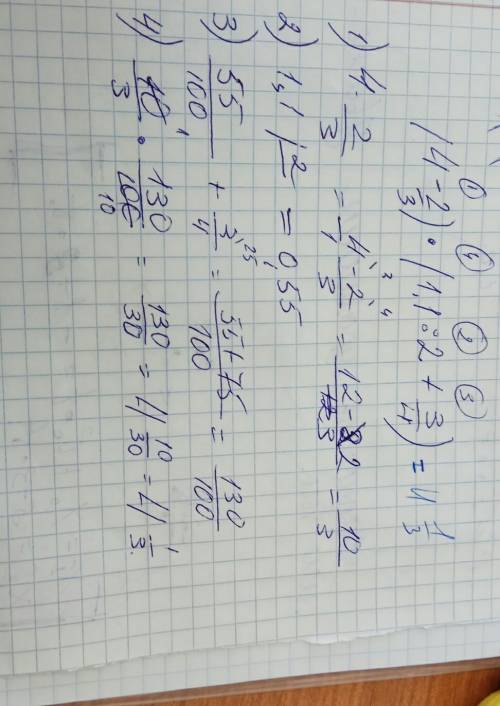 ① ④ ② ③
(4 - 2/3) · (1,1 : 2 + 3/4) = 4 1/3
1) 4 - 2/3 = 4/1 - 2/3 = 12-2/3 = 10/3
2) 1,1 |2 = 0,55
3) 55/100 + 3/4 = 55+75/100 = 130/100
4) 10/3 · 130/100 = 130/30 = 4 10/30 = 4 1/3.